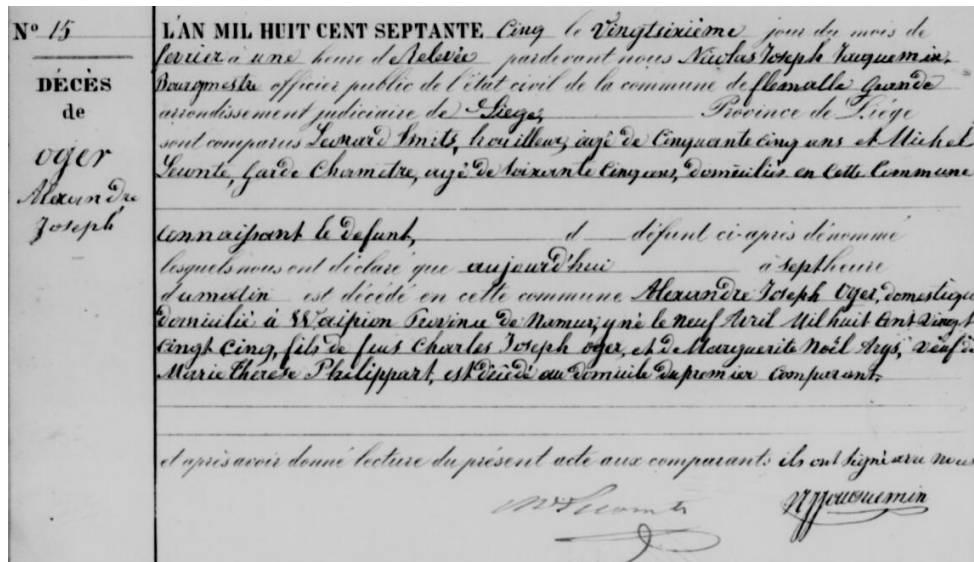 N° 15
DÉCÈS
de
oger
Alexandre
Joseph
L'AN MIL HUIT CENT SEPTANTE Cinq le Vingtsixième jour du mois de
fevrier à une heure d Relevée pardevant nous Nicolas Joseph Jaquemin,
Bourgmestre officier public de l'état civil de la commune de flemalle Grande
arrondissement judiciaire de Liege, Province de Liége
sont comparus Leonard Smits, houilleur, agé de Cinquante cinq ans et Michel
Leconte, Garde Champetre, agé de soixante Cinq ans, domiciliés en cette Commune
connaissant le defunt, d défunt ci-après dénommé
lesquels nous ont déclaré que aujourd'hui à sept heure
du matin est décédé en cette commune Alexandre Joseph Oger, domestique
domicilié à Waipion Province de Namur, y né le Neuf Avril Mil huit Cent Vingt
Cinq, fils de feus Charles Joseph oger, et de Marguerite Noël Arys, Veuf de
Marie Thérèse Philippart, est décédé au domicile du premier Comparant.
et après avoir donné lecture du présent acte aux comparants ils ont signé avec nous
M. Lecomte
N J Jacquemin